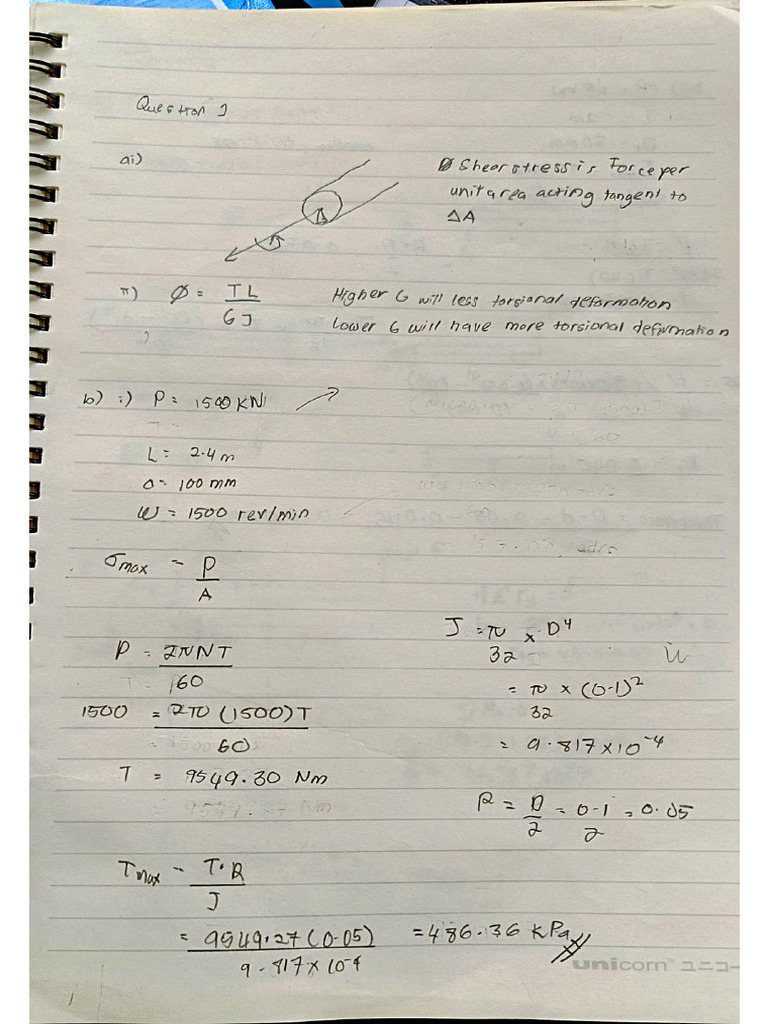 Question 1
ai)
Shear stress is Force per
unit area acting tangent to
ΔA
ii) Ø = TL / GJ
Higher G will less torsional deformation
Lower G will have more torsional deformation
b) i) P = 1500 KN
L = 2.4 m
D = 100 mm
ω = 1500 rev/min
σmax = P / A
P = 2πNT / 60
1500 = 2π (1500) T / 60
T = 9549.30 Nm
Tmax = T·R / J
= 9549.27 (0.05) / 9.817 × 10⁻⁴ = 486.36 kPa
J = π / 32 × D⁴
= π / 32 × (0.1)²
= 9.817 × 10⁻⁴
R = D / 2 = 0.1 / 2 = 0.05
unicorn™ ユニコー